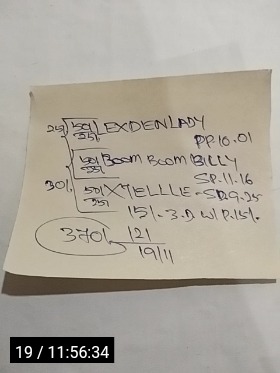 25/ 50/25/ LEXDENLADY
PP.10.01
50/25/ BOOM BOOM BILLY
30/. SP.11.16
50/25/ XTELLLE - SP.9.25
15/- 3.D W/P.15/.
370/. 121
19/11
19 / 11:56:34